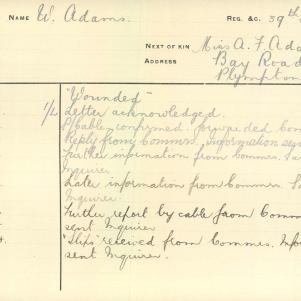 NAME W. Adams. REG. &C. 39th
NEXT OF KIN Miss A. F. Ada
ADDRESS Bay Road
Plympton
"Wounded"
1/2 Letter acknowledged.
P/Cable confirmed. forwarded Com
Reply from Commrs. information sen
Further information from Commrs. Se
Inquirer
Later information from Commrs. S
Inquirer
Further report by cable from Comm
sent Inquirer
"Slips" received from Commrs. Info
sent Inquirer.